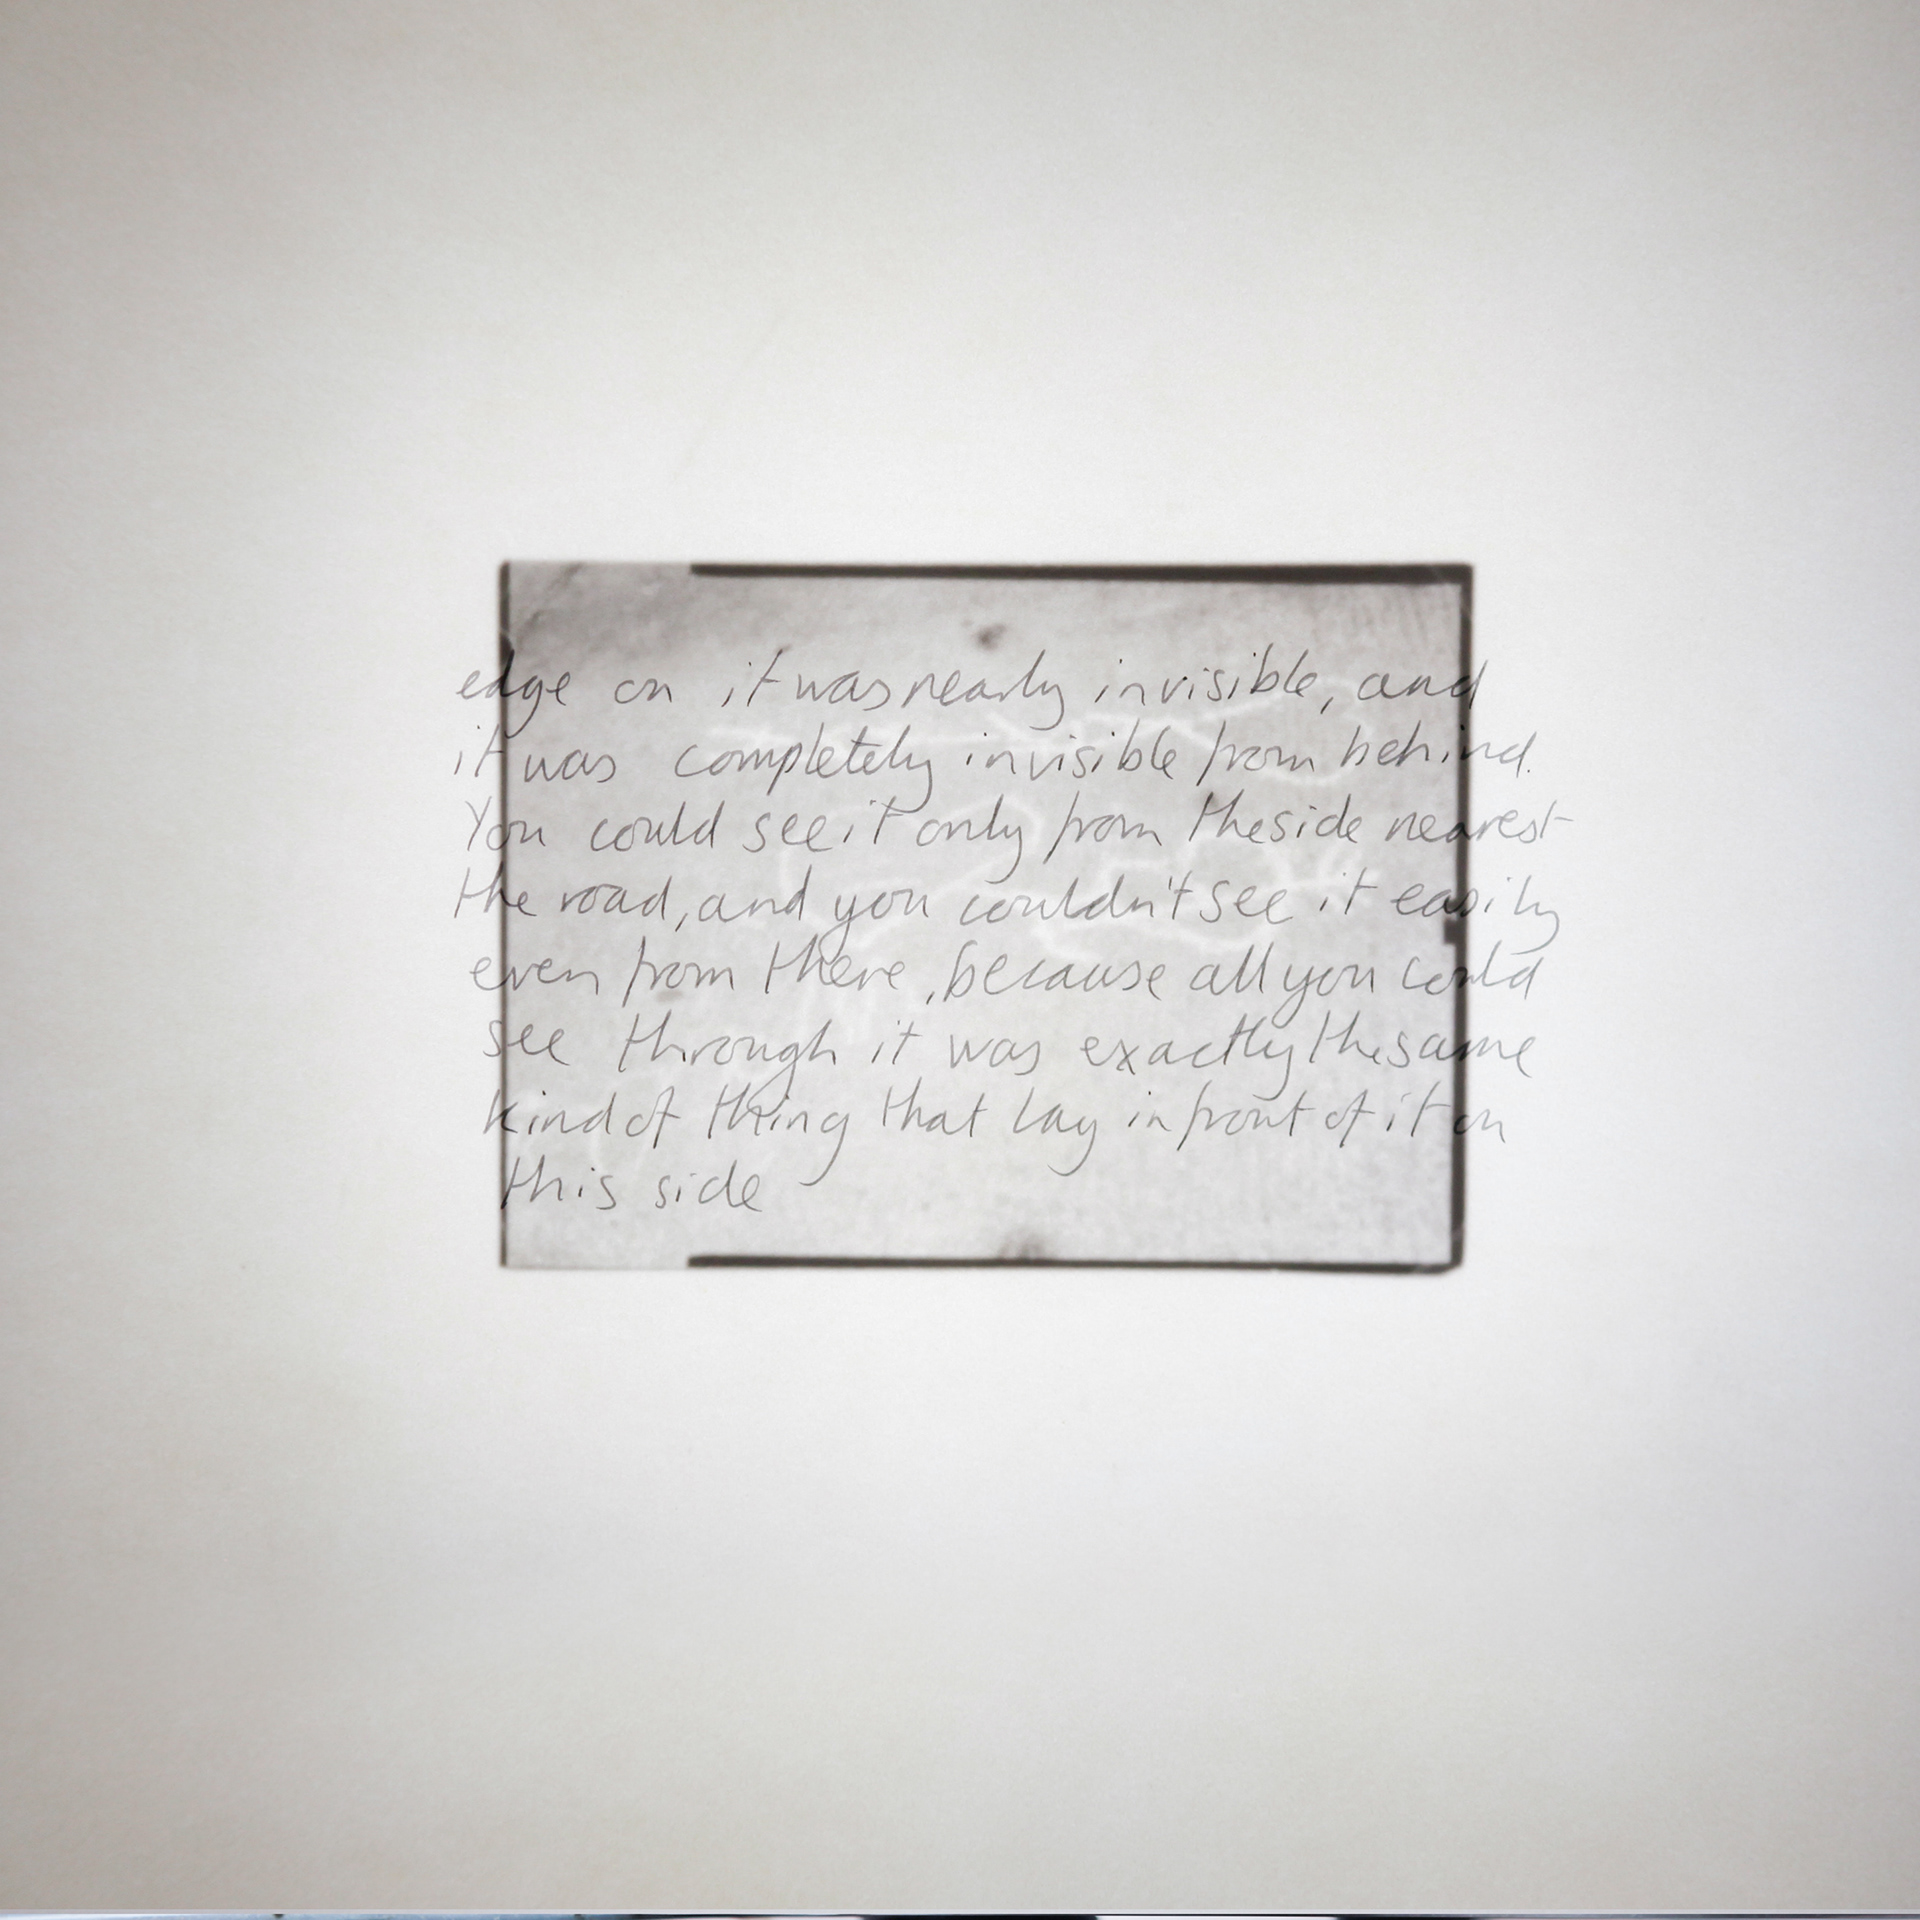 edge on it was nearly invisible, and
it was completely invisible from behind.
You could see it only from the side nearest
the road, and you couldn't see it easily
even from there, because all you could
see through it was exactly the same
kind of thing that lay in front of it on
this side